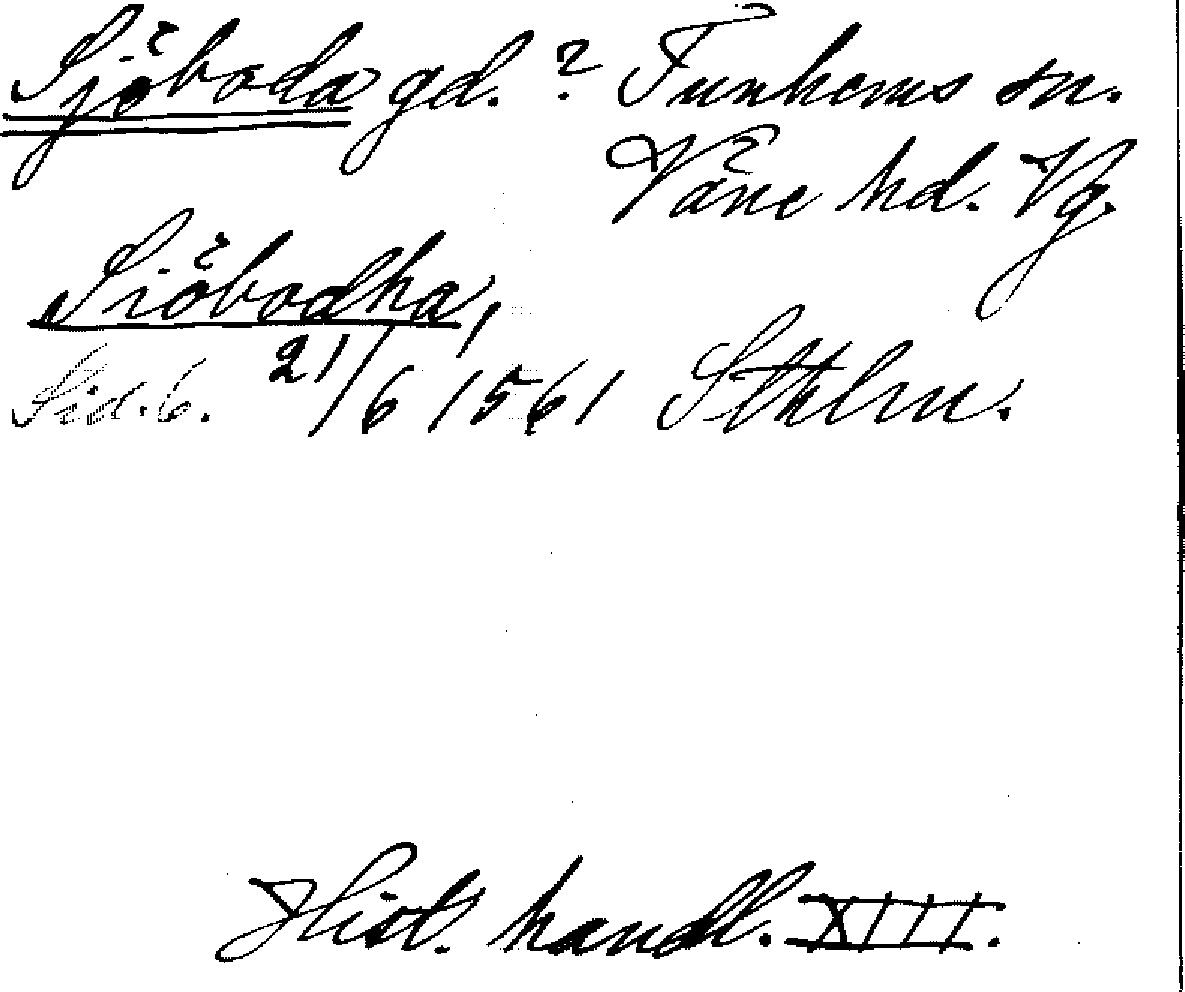 Sjöboda gd. ? Funhems sn.
Väne hd. Vg.
Siöbodha,
Sid. 6. 21/6 1561 Sthlm.
Hist. handl. XIII.